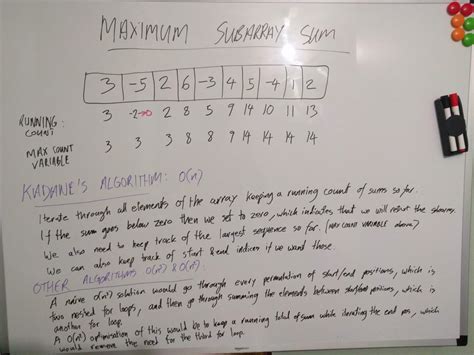 MAXIMUM SUBARRAY SUM
3 -5 2 6 -3 4 5 -4 1 2
RUNNING COUNT: 3 -2→0 2 8 5 9 14 10 11 13
MAX COUNT VARIABLE 3 3 3 8 8 9 14 14 14 14
KADANE'S ALGORITHM: O(n)
Iterate through all elements of the array keeping a running count of sums so far.
If the sum goes below zero then we set to zero, which indicates that we will restart the subarray.
We also need to keep track of the largest sequence so far. (MAX COUNT VARIABLE above)
We can also keep track of start & end indices if we want those.
OTHER ALGORITHMS O(n³) & O(n²):
A naive O(n³) solution would go through every permutation of start/end positions, which is
two nested for loops, and then go through summing the elements between start/end positions, which is
another for loop.
A O(n²) optimisation of this would be to keep a running total of sum while iterating the end pos, which
would remove the need for the third for loop.